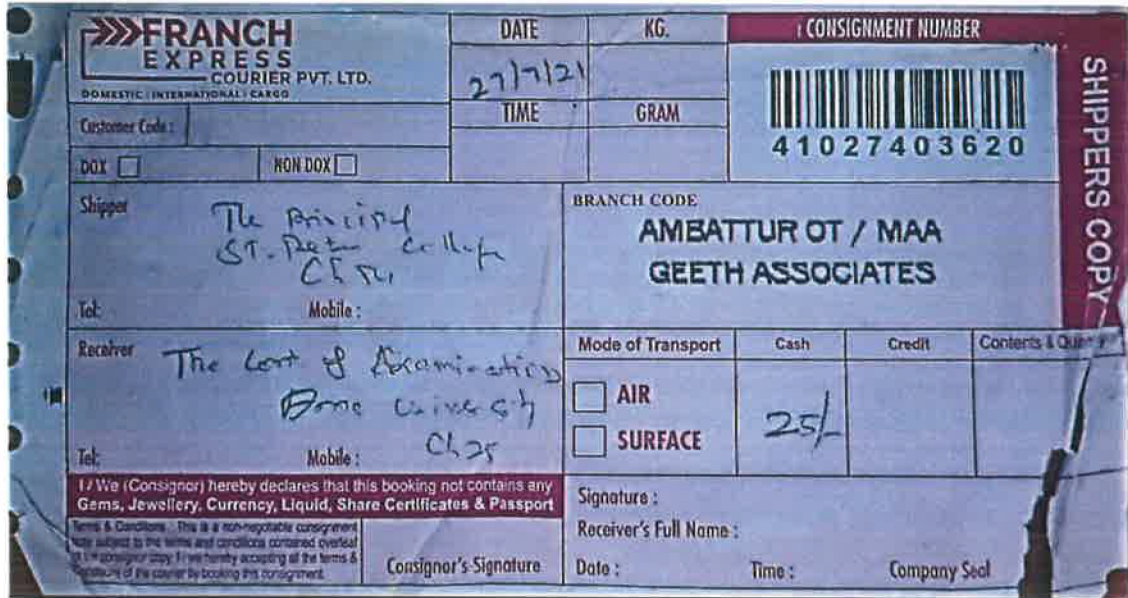 FRANCH
EXPRESS
COURIER PVT. LTD.
DOMESTIC | INTERNATIONAL | CARGO
DATE
KG.
: CONSIGNMENT NUMBER
27/7/21
TIME
GRAM
41027403620
Customer Code :
DOX
NON DOX
SHIPPERS COPY
Shipper
The Principal
ST. Peter College
BRANCH CODE
AMBATTUR OT / MAA
GEETH ASSOCIATES
Tel:
Mobile :
Receiver
The Cont of Examination
University
Ch 25
Tel:
Mobile :
Mode of Transport
Cash
Credit
Contents &
AIR
SURFACE
25/-
I / We (Consignor) hereby declares that this booking not contains any
Gems, Jewellery, Currency, Liquid, Share Certificates & Passport
Terms & Conditions : This is a non-negotiable consignment
note subject to the terms and conditions contained overleaf
consignor copy. I / we hereby accepting all the terms &
of the courier by booking this consignment.
Consignor's Signature
Signature :
Receiver's Full Name :
Date :
Time :
Company Seal